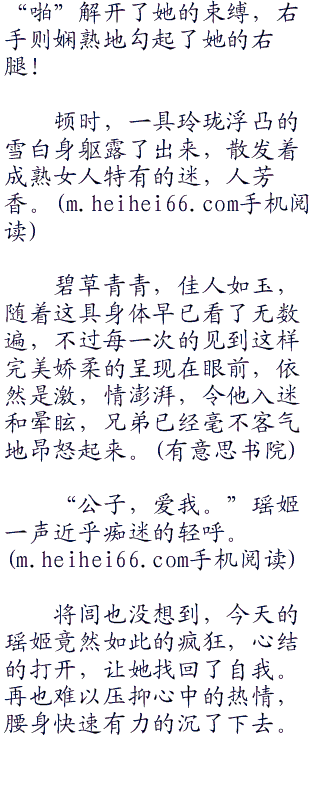 “啪”解开了她的束缚，右
手则娴熟地勾起了她的右
腿！
顿时，一具玲珑浮凸的
雪白身躯露了出来，散发着
成熟女人特有的迷，人芳
香。(m.heihei66.com手机阅
读)
碧草青青，佳人如玉，
随着这具身体早已看了无数
遍，不过每一次的见到这样
完美娇柔的呈现在眼前，依
然是激，情澎湃，令他入迷
和晕眩，兄弟已经毫不客气
地昂怒起来。(有意思书院)
“公子，爱我。”瑶姬
一声近乎痴迷的轻呼。
(m.heihei66.com手机阅读)
将闾也没想到，今天的
瑶姬竟然如此的疯狂，心结
的打开，让她找回了自我。
再也难以压抑心中的热情，
腰身快速有力的沉了下去。